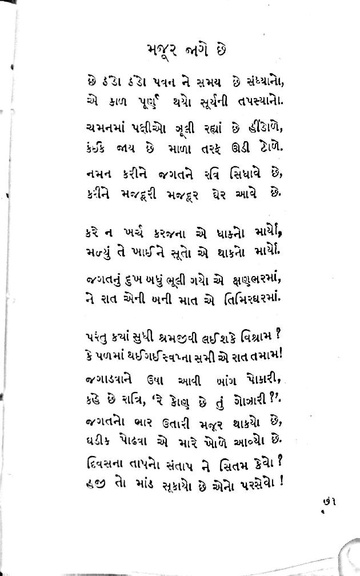 મજૂર જાગે છે
છે ઠંડો ઠંડો પવન ને સમય છે સંધ્યાનો,
એ કાળ પૂર્ણ થયો સૂર્યની તપસ્યાનો.
ચમનમાં પક્ષીઓ ઝૂલી રહ્યાં છે હીંડોળે,
કંઈક જાય છે માળા તરફ ઊડી ટોળે.
નમન કરીને જગતને રવિ સિધાવે છે,
કરીને મજદૂરી મજદૂર ઘેર આવે છે.
કરે ન ખર્ચ કરજના એ ધાકનો માર્યો,
મળ્યું તે ખાઈને સૂતો એ થાકનો માર્યો.
જગતનું દુખ બધું ભૂલી ગયો એ ક્ષણભરમાં,
ને રાત એની બની માત એ તિમિરઘરમાં.
પરંતુ ક્યાં સુધી શ્રમજીવી લઈ શકે વિશ્રામ ?
કે પળમાં થઈ ગઈ સ્વપ્ના સમી એ રાત તમામ!
જગાડવાને ઉષા આવી બાંગ પોકારી,
કહે છે રાત્રિ, ‘રે કોણ છે તું ગોઝારી ?’.
જગતનો ભાર ઉતારી મજૂર થાકયો છે,
ઘડીક પોઢવા એ મારે ખોળે આવ્યો છે.
દિવસના તાપનો સંતાપ ને સિતમ કેવો ?
હજી તો માંડ સૂકાયો છે એનો પરસેવો !
૭૧